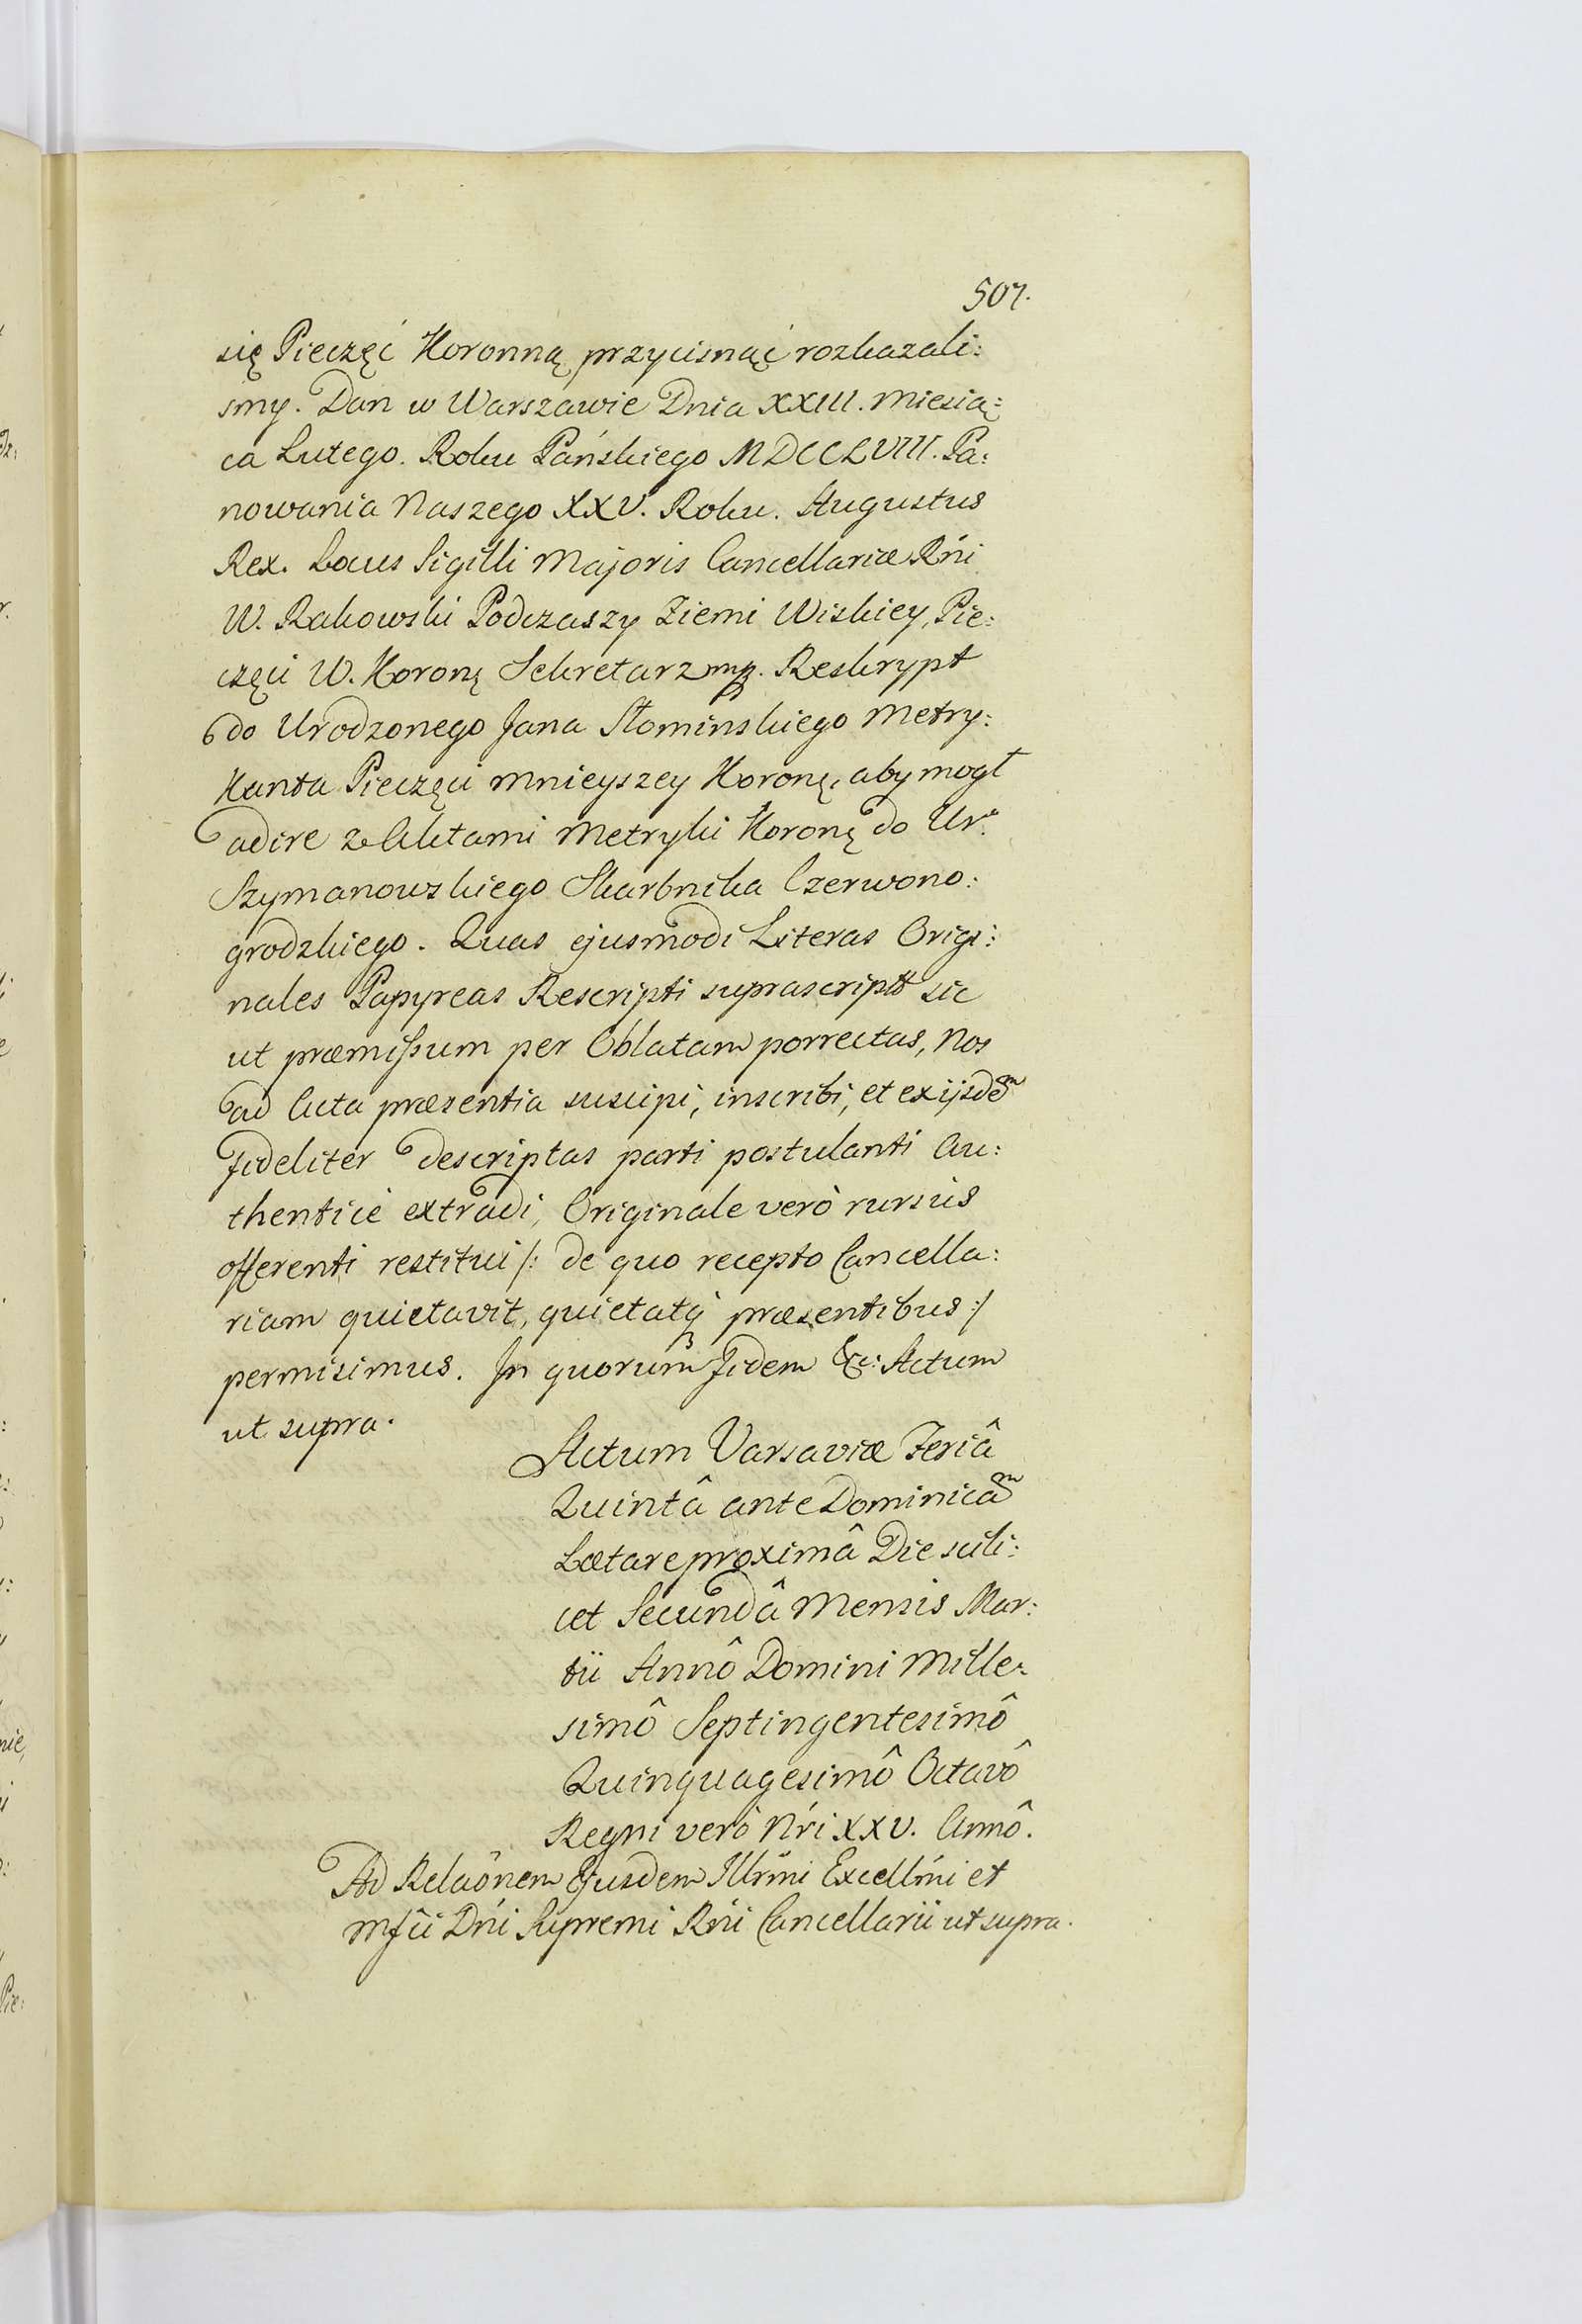 507.
się Pieczęć Koronną przycisnąć rozkazali:
smy. Dan w Warszawie Dnia XXIII. Miesią:
ca Lutego. Roku Pańskiego MDCCLVIII. Pa:
nowania Naszego XXV. Roku. Augustus
Rex. Locus Sigilli Majoris Cancellariæ Rńi
W. Rakowski Podczaszy Ziemi Wiskiey, Pie:
częci W. Koronę Sekretarz mp. Reskrypt
do Urodzonego Jana Słominskiego Metry:
kanta Pieczęci Mnieyszey Koronę, aby mogł
adire z Aktami Metryki Koronę do Ur:
Szymanowskiego Skarbnika Czerwono:
grodzkiego. Quas ejusmodi Literas Origi:
nales Papyreas Rescripti suprascripti sic
ut præmissum per Oblatam porrectas, Nos
ad Acta præsentia suscipi, inscribi, et ex ijsdem
fideliter descriptas parti postulanti Au:
thenticè extradi, Originale verò rursùs
offerenti restitui /: de quo recepto Cancella:
riam quietavit, quietatq; præsentibus :/
permisimus. In quorum fidem &c: Actum
ut supra.
Actum Varsaviæ Feriâ
Quintâ ante Dominicam
Lætare proximâ Die scili:
cet Secundâ Mensis Mar:
tii Annô Domini Mille:
simô Septingentesimô
Quinquagesimô Octavô
Regni verò Nri XXV. Annô.
Ad Relaõnem Ejusdem Illrmi Excellmi et
Mfci Dńi Supremi Rńi Cancellarii ut supra.